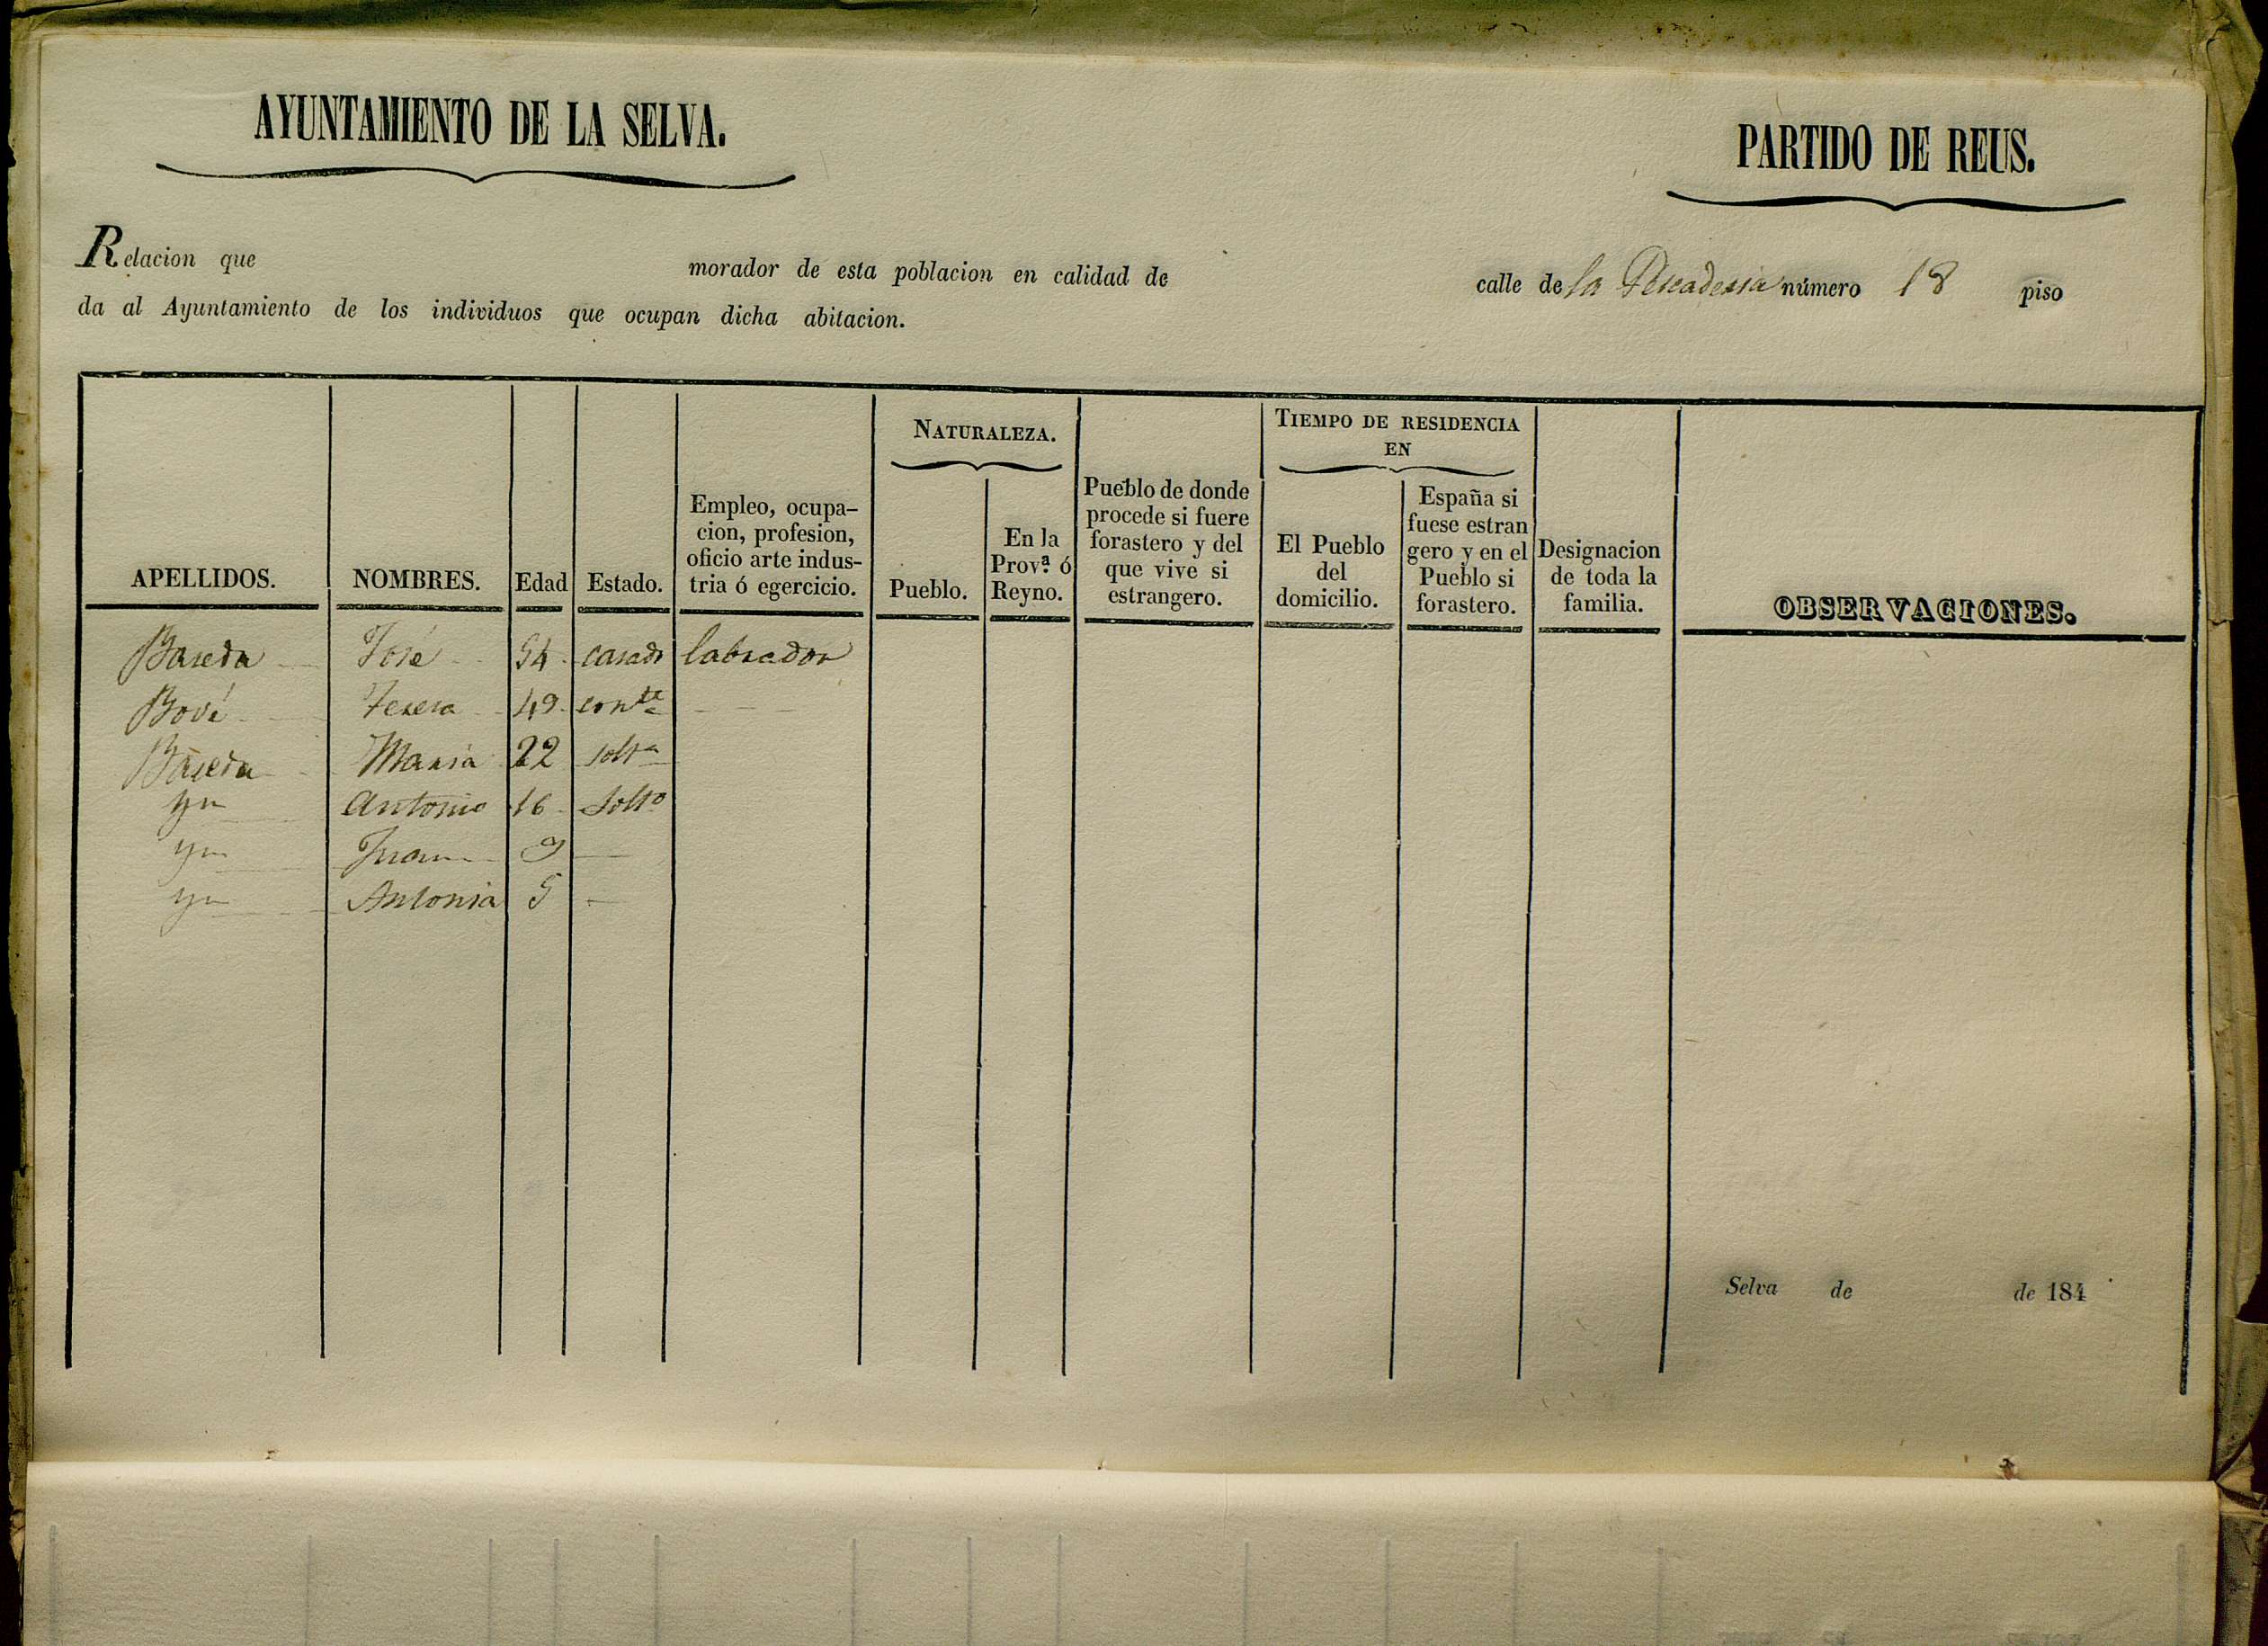 AYUNTAMIENTO DE LA SELVA.
PARTIDO DE REUS.
Relacion que morador de esta poblacion en calidad de calle de la Pescaderia número 18 piso
da al Ayuntamiento de los individuos que ocupan dicha abitacion.
APELLIDOS.
NOMBRES.
Edad
Estado.
Empleo, ocupa-
cion, profesion,
oficio arte indus-
tria ó egercicio.
NATURALEZA.
Pueblo.
En la
Prov.ª ó
Reyno.
Pueblo de donde
procede si fuere
forastero y del
que vive si
estrangero.
TIEMPO DE RESIDENCIA
EN
El Pueblo
del
domicilio.
España si
fuese estran
gero y en el
Pueblo si
forastero.
Designacion
de toda la
familia.
OBSERVACIONES.
Baseda José 54 casado labrador
Bové Teresa 49 conte
Baseda Maria 22 solta
yn Antonio 16 Solto
yn Juan 9
yn Antonia 5
Selva de de 184